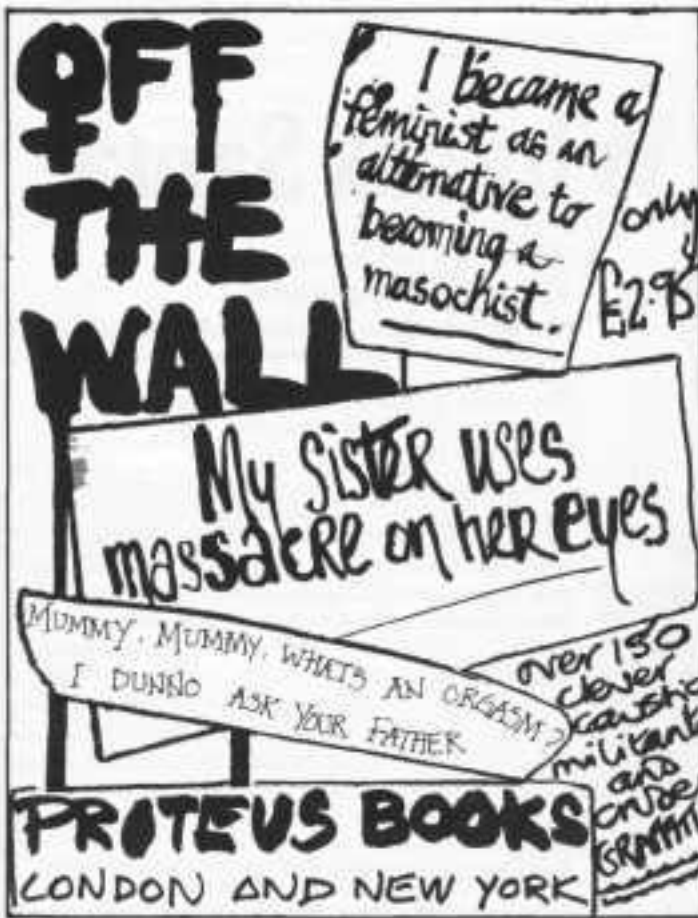 OFF
THE
WALL
I became a
feminist as an
alternative to
becoming a
masochist.
only
£2.95
My sister uses
massacre on her eyes
MUMMY, MUMMY, WHATS AN ORGASM?
I DUNNO ASK YOUR FATHER
over 150
clever
militant
and
crude
GRAFFITI
PROTEUS BOOKS
LONDON AND NEW YORK